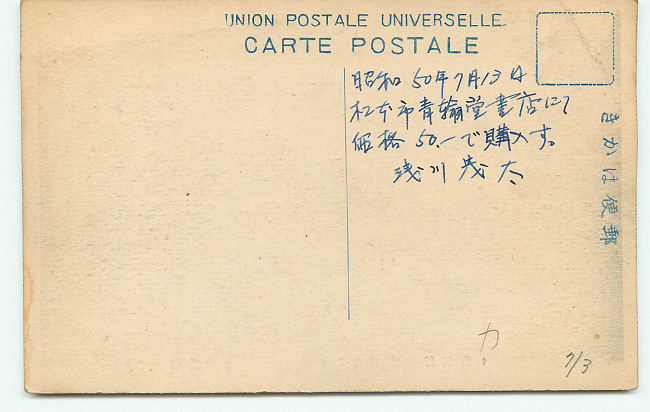 UNION POSTALE UNIVERSELLE
CARTE POSTALE
昭和50年7月13日
松本市青翰堂書店にて
価格50.-で購入す。
浅川茂太
きかは便郵
カ
7/3